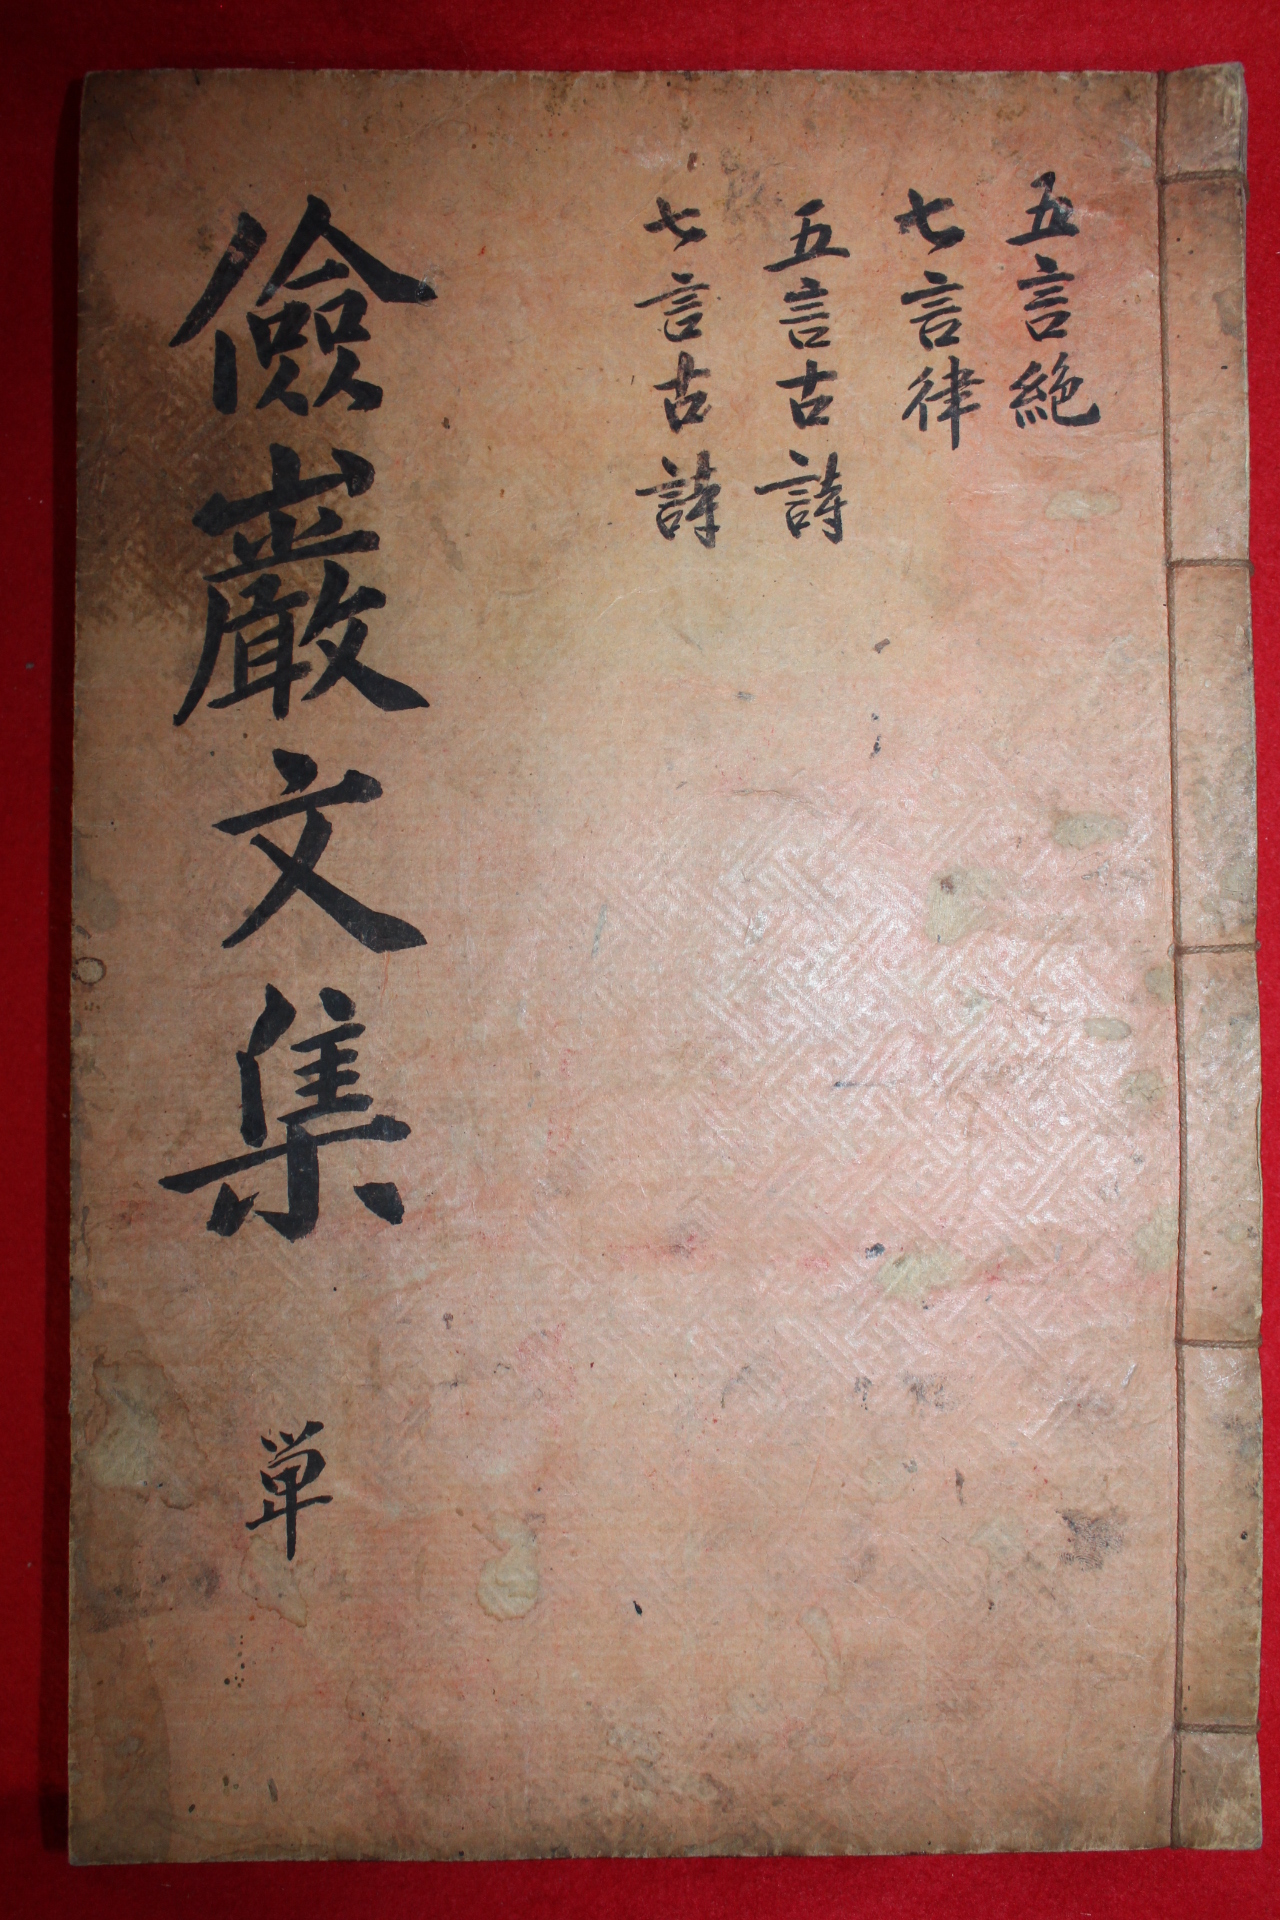 五言絶
七言律
五言古詩
七言古詩
儉巖文集
単